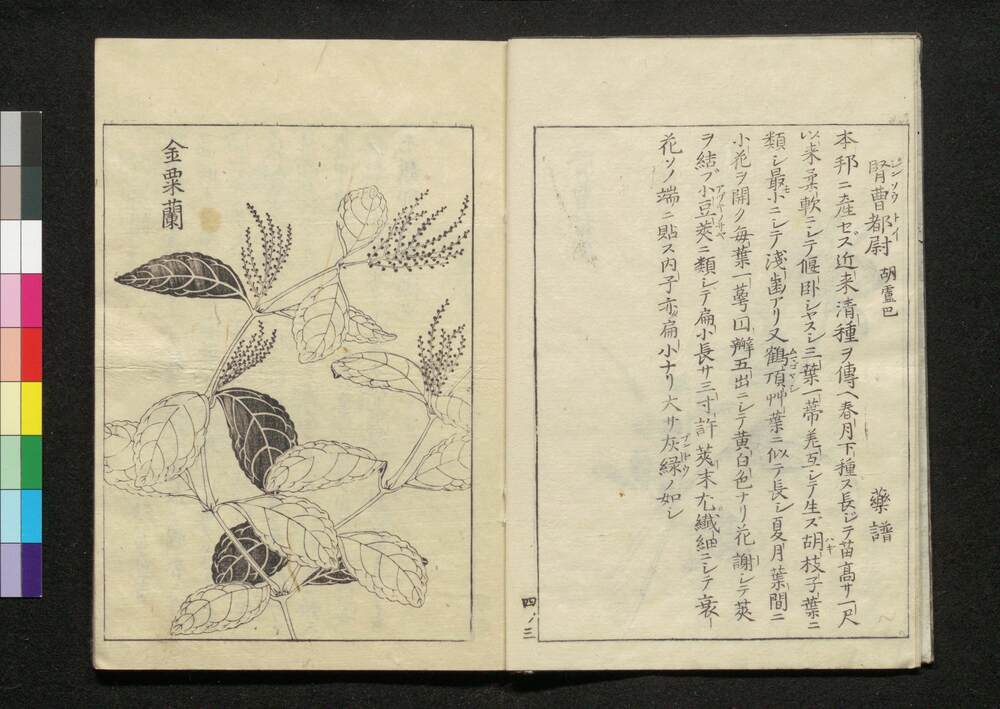 腎曹都尉 胡盧巴 藥譜
ジンソウトイ
本邦ニ産セズ近来清種ヲ傳ヘ春月下種ス長ジテ苗高サ一尺
以来柔軟ニシテ偃臥シヤスシ三葉一蒂差互シテ生ズ胡枝子葉ニ
ハギ
類シ最小ニシテ淺齒アリ又鶴頂艸葉ニ似テ長シ夏月葉間ニ
小花ヲ開ク毎葉一萼四瓣五出ニシテ黄白色ナリ花謝シテ莢
ヲ結ブ小豆莢ニ類シテ扁小長サ三寸許莢末尤纖細ニシテ衰
花ソノ端ニ貼ス内子亦扁小ナリ大サ灰緑ノ如シ
四ノ三
金粟蘭